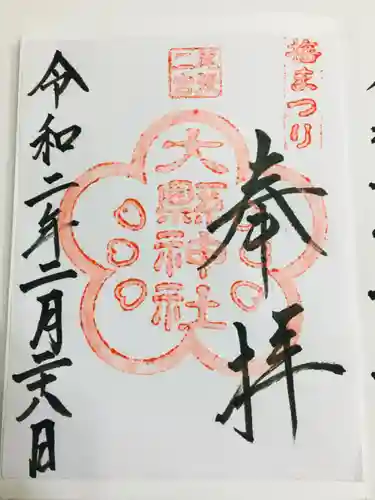 梅まつり
奉拝
尾張
二宮
大縣神社
令和二年二月二十八日